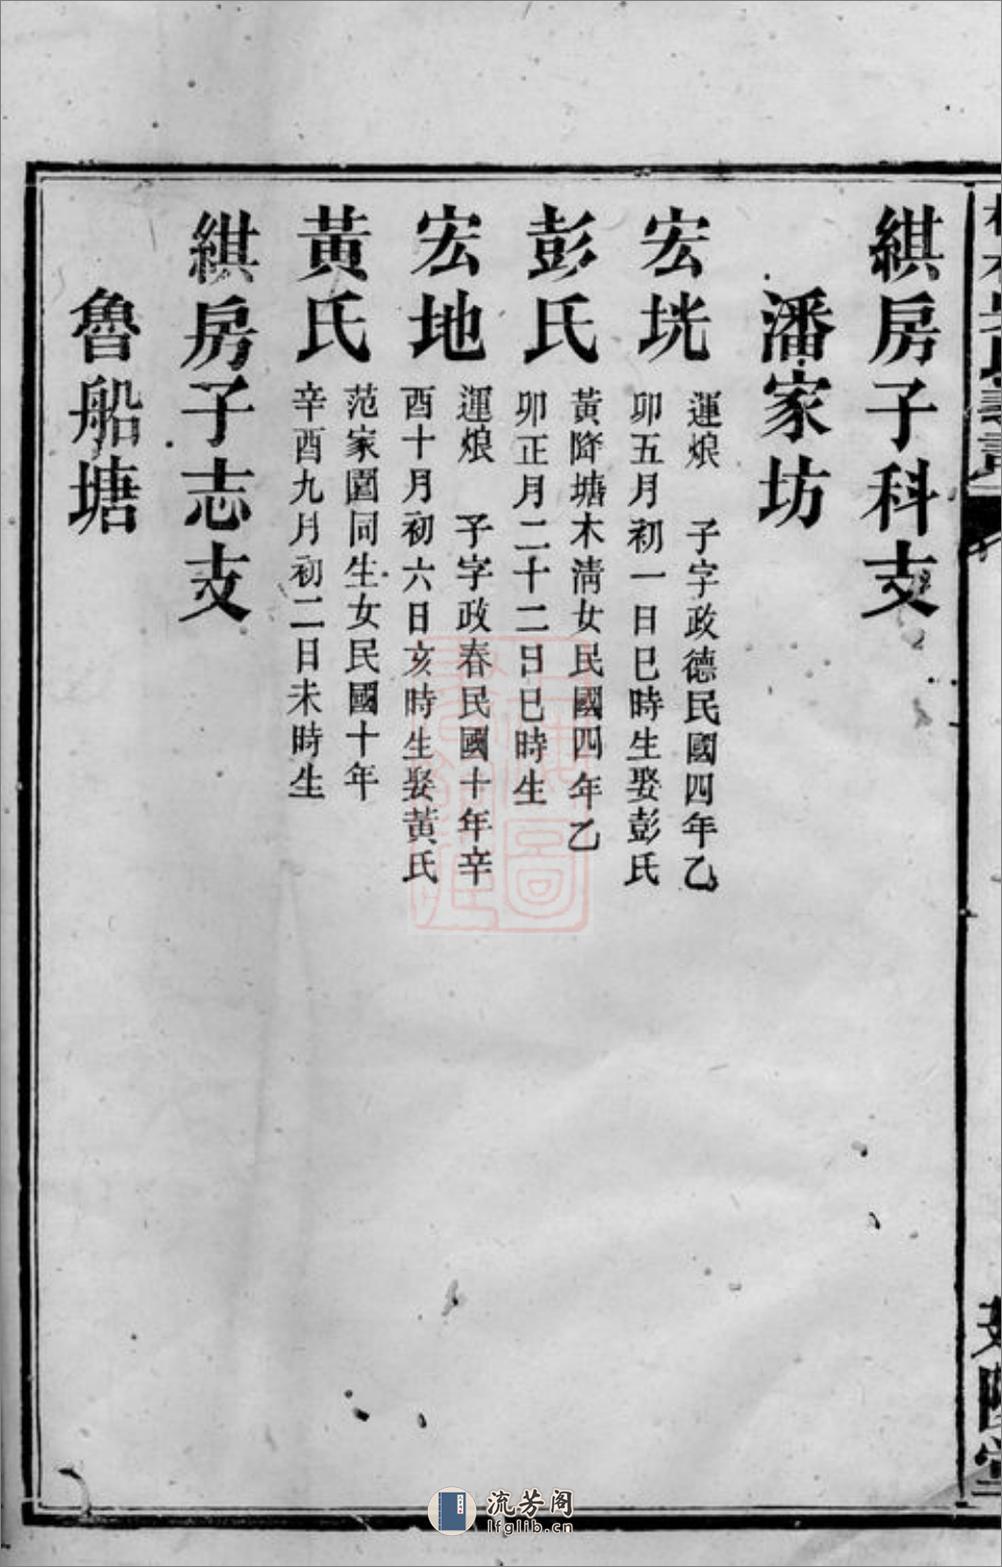 綨房子科支
潘家坊
宏垙
運烺 子字政德民國四年乙
卯五月初一日巳時生娶彭氏
彭氏
黃降塘木清女民國四年乙
卯正月二十二日巳時生
宏地
運烺 子字政春民國十年辛
酉十月初六日亥時生娶黃氏
黃氏
范家園同生女民國十年
辛酉九月初二日未時生
綨房子志支
魯船塘
流芳阁
lfglib.cn